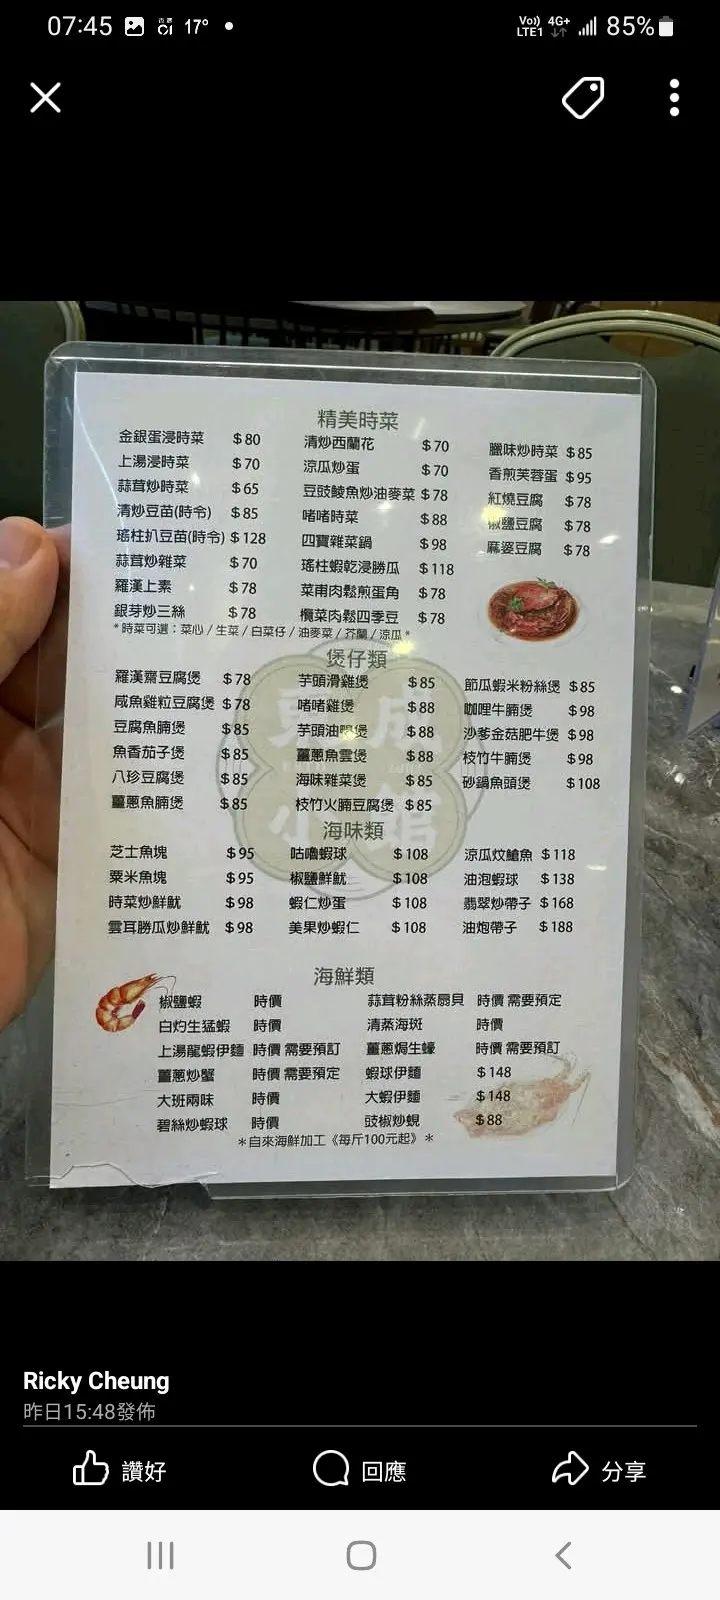 07:45 17° Vo)) LTE1 4G+ 85%
精美時菜
金銀蛋浸時菜 $80
上湯浸時菜 $70
蒜茸炒時菜 $65
清炒豆苗(時令) $85
瑤柱扒豆苗(時令) $128
蒜茸炒雜菜 $70
羅漢上素 $78
銀芽炒三絲 $78
清炒西蘭花 $70
涼瓜炒蛋 $70
豆豉鯪魚炒油麥菜 $78
啫啫時菜 $88
四寶雜菜鍋 $98
瑤柱蝦乾浸勝瓜 $118
菜甫肉鬆煎蛋角 $78
欖菜肉鬆四季豆 $78
臘味炒時菜 $85
香煎芙蓉蛋 $95
紅燒豆腐 $78
椒鹽豆腐 $78
麻婆豆腐 $78
*時菜可選：菜心/生菜/白菜仔/油麥菜/芥蘭/涼瓜*
煲仔類
羅漢齋豆腐煲 $78
咸魚雞粒豆腐煲 $78
豆腐魚腩煲 $85
魚香茄子煲 $85
八珍豆腐煲 $85
薑蔥魚腩煲 $85
芋頭滑雞煲 $85
啫啫雞煲 $88
芋頭油鴨煲 $88
薑蔥魚雲煲 $88
海味雜菜煲 $85
枝竹火腩豆腐煲 $85
節瓜蝦米粉絲煲 $85
咖哩牛腩煲 $98
沙爹金菇肥牛煲 $98
枝竹牛腩煲 $98
砂鍋魚頭煲 $108
海味類
芝士魚塊 $95
粟米魚塊 $95
時菜炒鮮魷 $98
雲耳勝瓜炒鮮魷 $98
咕嚕蝦球 $108
椒鹽鮮魷 $108
蝦仁炒蛋 $108
美果炒蝦仁 $108
涼瓜炆鎗魚 $118
油泡蝦球 $138
翡翠炒帶子 $168
油炮帶子 $188
海鮮類
椒鹽蝦 時價
白灼生猛蝦 時價
上湯龍蝦伊麵 時價 需要預訂
薑蔥炒蟹 時價 需要預定
大班兩味 時價
碧絲炒蝦球 時價
蒜茸粉絲蒸扇貝 時價 需要預定
清蒸海斑 時價
薑蔥焗生蠔 時價 需要預訂
蝦球伊麵 $148
大蝦伊麵 $148
豉椒炒蜆 $88
＊自來海鮮加工《每斤100元起》＊
Ricky Cheung
昨日15:48發佈
讚好 回應 分享